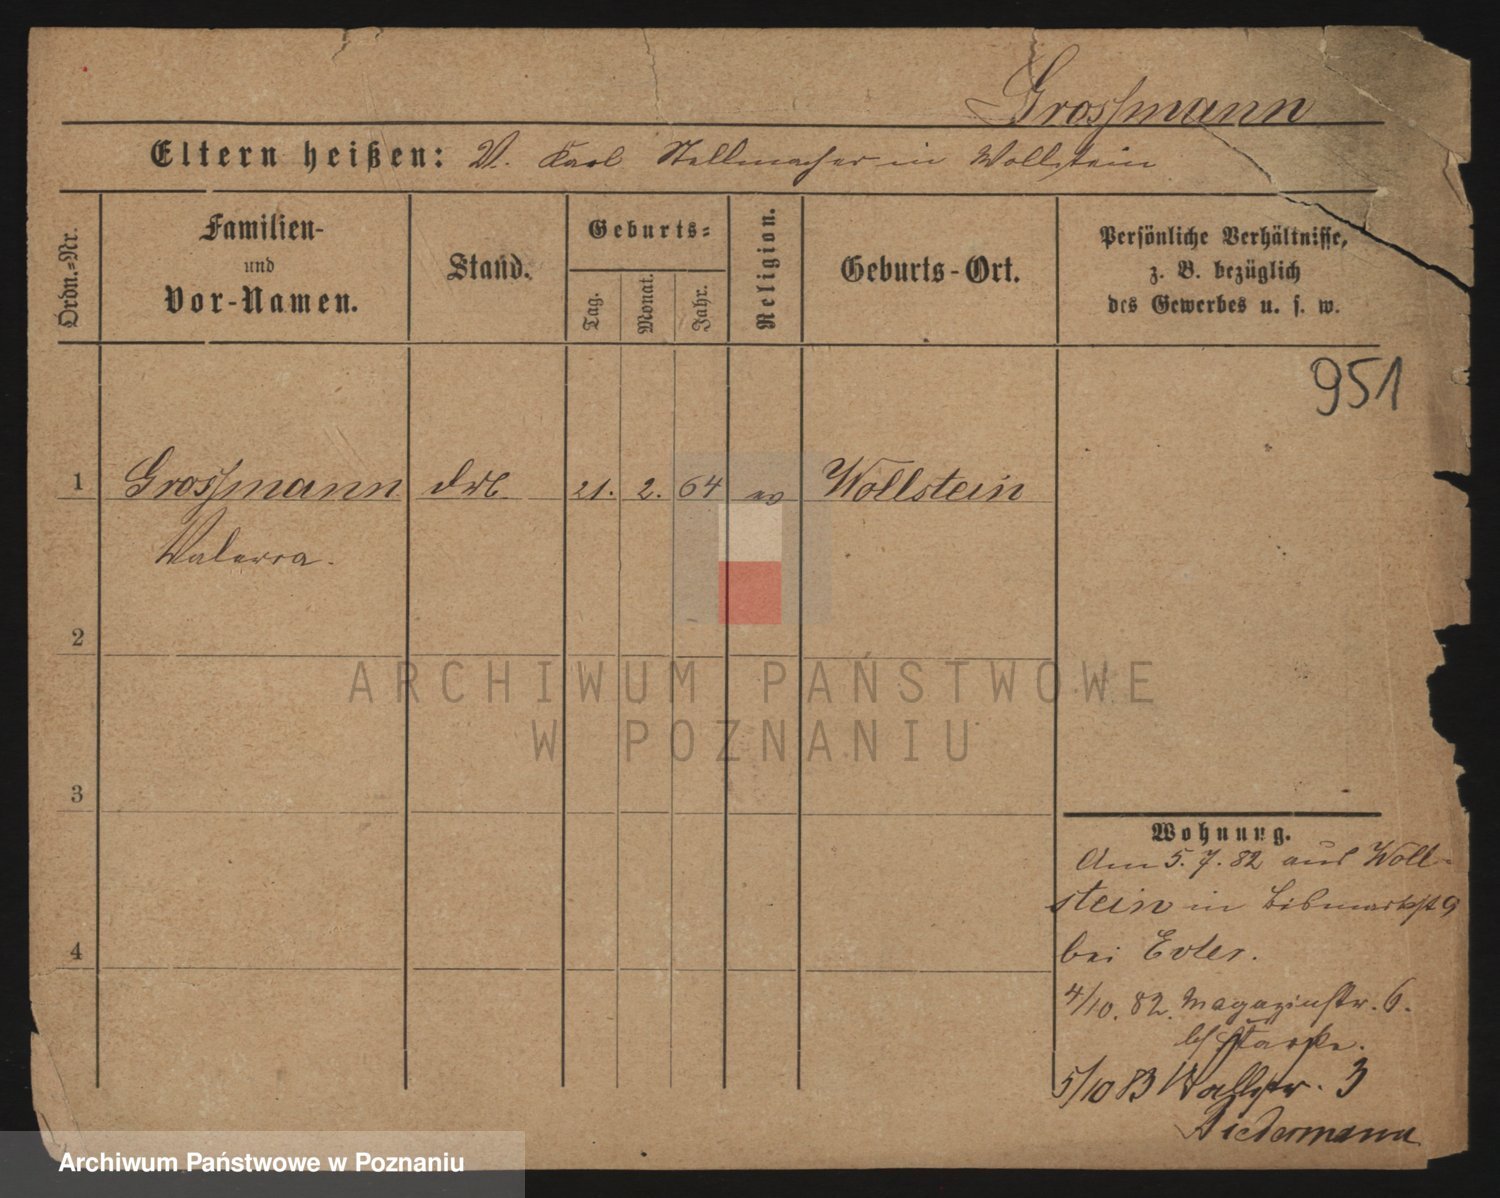 Grossmann
Eltern heißen: V. Karl Stellmacher in Wollstein
Ordn.-Nr.
Familien-
und
Vor-Namen.
Stand.
Geburts-
Tag.
Monat.
Jahr.
Religion.
Geburts-Ort.
Persönliche Verhältnisse,
z. B. bezüglich
des Gewerbes u. s. w.
951
1 Grossmann 21. 2. 64 ev Wollstein
Valerra.
2
3
4
Wohnung.
Am 5.7.82 aus Woll-
stein in Bismarckst 9
bei
4/10.82. Magazinstr. 6.
5/10 83 Wallstr. 3
Biedermann
ARCHIWUM PAŃSTWOWE
W POZNANIU
Archiwum Państwowe w Poznaniu